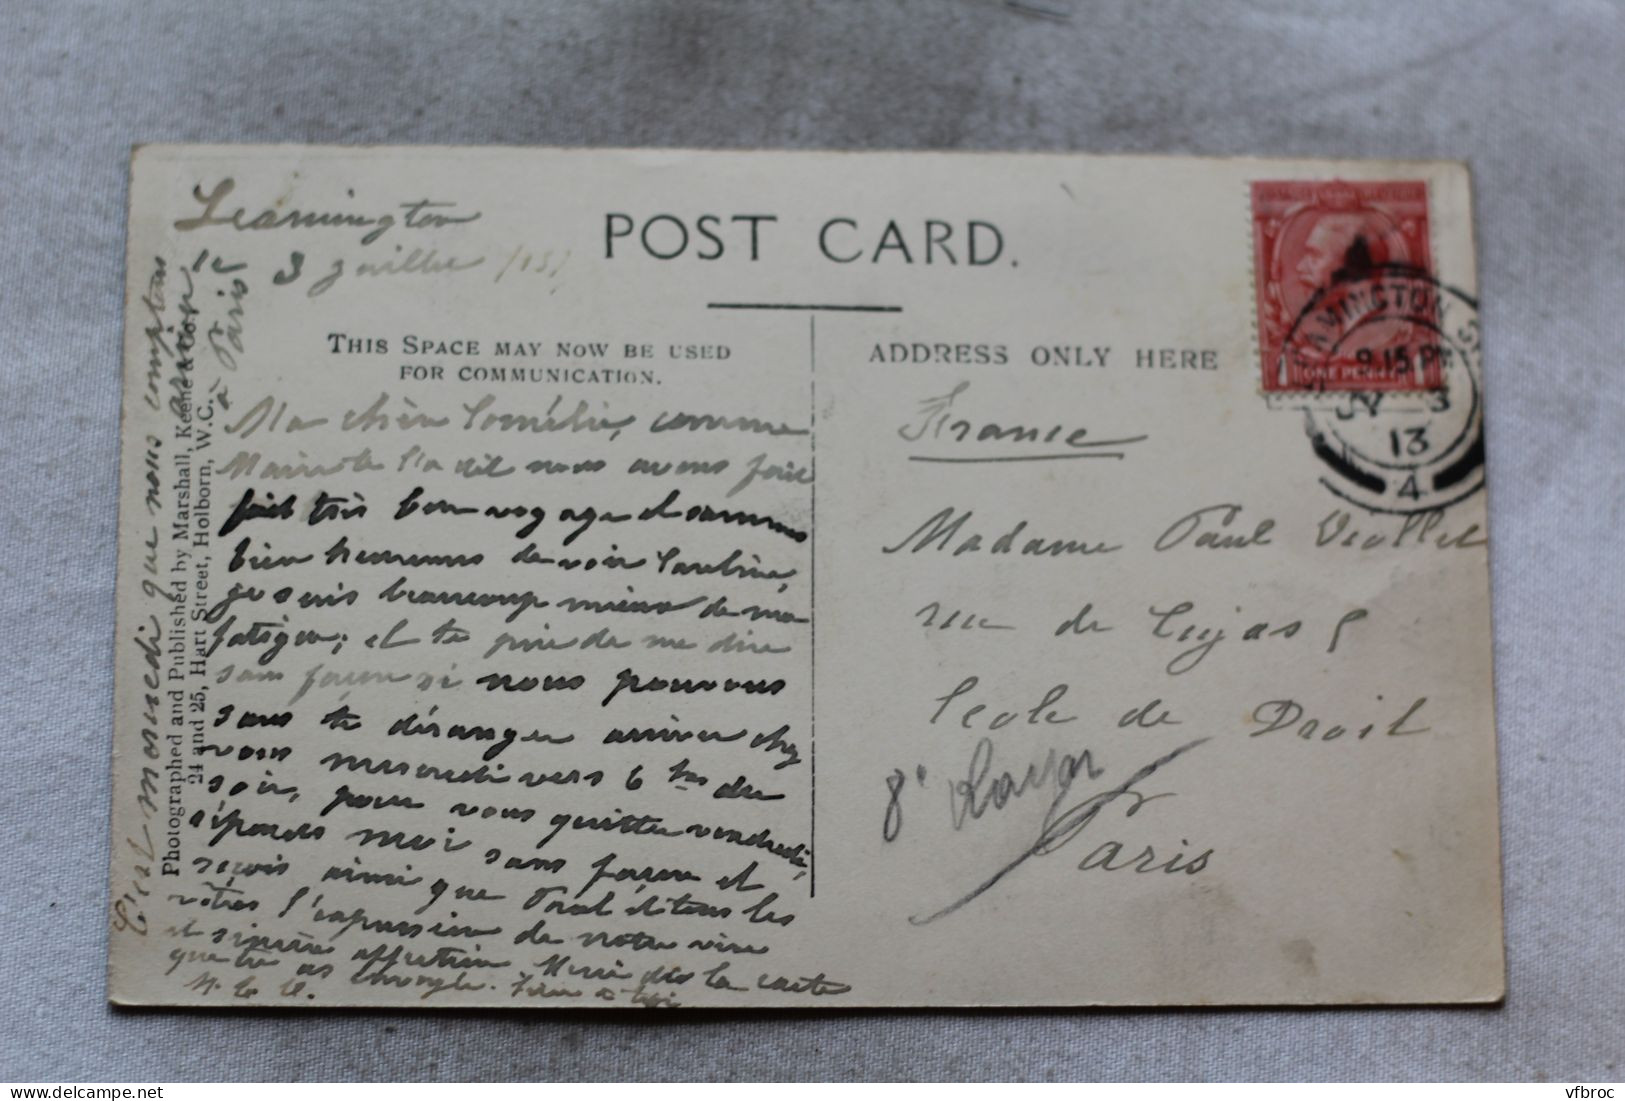 Leamington
3 Juillet 1913
POST CARD.
THIS SPACE MAY NOW BE USED
FOR COMMUNICATION.
ADDRESS ONLY HERE
Ma chère Cornélie, comme
l'a dit nous avons fait
fait très bon voyage et sommes
bien heureuses de voir Caroline,
je suis beaucoup mieux de ma
fatigue; et te prie de me dire
sans façon si nous pouvons
sans te déranger arriver chez
vous mercredi vers 6 hrs du
soir, pour vous quitter vendredi,
réponds moi sans façon et
reçois ainsi que Paul et tous les
vôtres l'expression de notre vive
et sincère affection Merci de la carte
que tu as envoyée.
C'est mercredi que nous comptons
arriver
à Paris
Photographed and Published by Marshall, Keene & Co.,
24 and 25, Hart Street, Holborn, W.C.
France
Madame Paul Viollet
rue de Cujas 5
Ecole de Droit
Paris
ONE PENNY
LEAMINGTON SPA
9.15 PM
JY 3
13
4
vfbroc